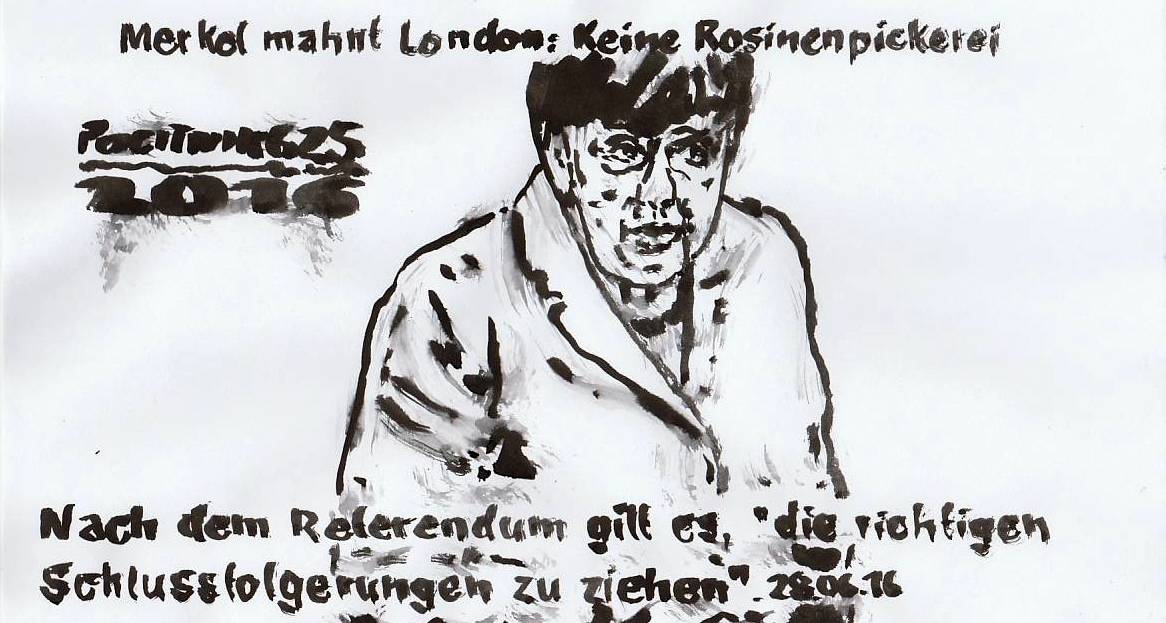 Merkel mahnt London: Keine Rosinenpickerei
2016
Nach dem Referendum gilt es, "die richtigen
Schlussfolgerungen zu ziehen". 28.06.16